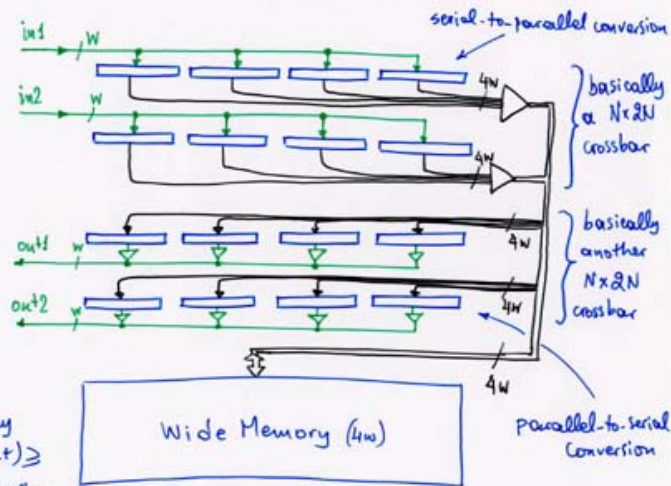 serial-to-parallel conversion
in1
W
4W
in2
W
4W
basically
a N×2N
crossbar
out1
w
4W
out2
w
4W
basically
another
N×2N
crossbar
4W
Wide Memory (4w)
parallel-to-serial
Conversion
t) ≥